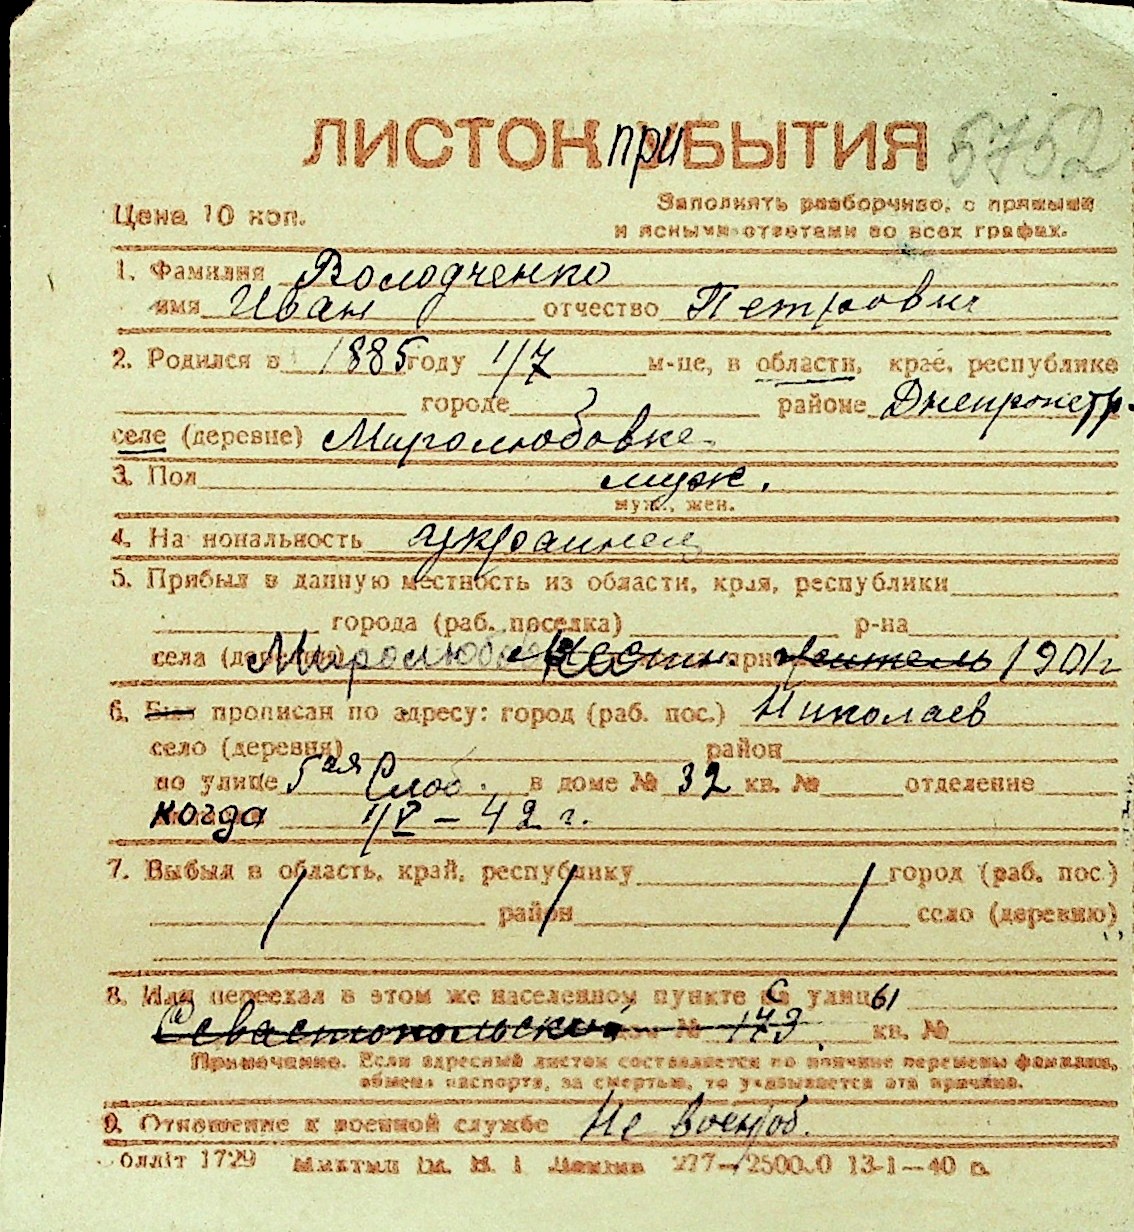 ЛИСТОК при БЫТИЯ 5752
Цена 10 коп.
Заполнять разборчиво, с прямыми
и ясными ответами во всех графах.
1. Фамилия Володченко
имя Иван отчество Петрович
2. Родился в 1885 году 1/7 м-це, в области, крае, республике
городе районе Днепропетр.
селе (деревне) Миролюбовке
3. Пол муж.
муж., жен.
4. На нональность украинец
5. Прибыл в данную местность из области, края, республики
города (раб. поселка) р-на
села (деревни) Миролюбовка 1901 г
6. Был прописан по адресу: город (раб. пос.) Николаев
село (деревня) район
по улице 5ая Слоб. в доме № 32 кв. № отделение
когда 1/V - 42 г.
7. Выбыл в область, край, республику город (раб. пос.)
район село (деревню)
8. Или переехал в этом же населенном пункте с улицы
Севастопольской дом № 173 кв. №
Примечание. Если адресный листок составляется по причине перемены фамилии,
обмена паспорта, за смертью, то указывается эта причина.
9. Отношение к военной службе Не военнооб.
1729 13-1—40 г.